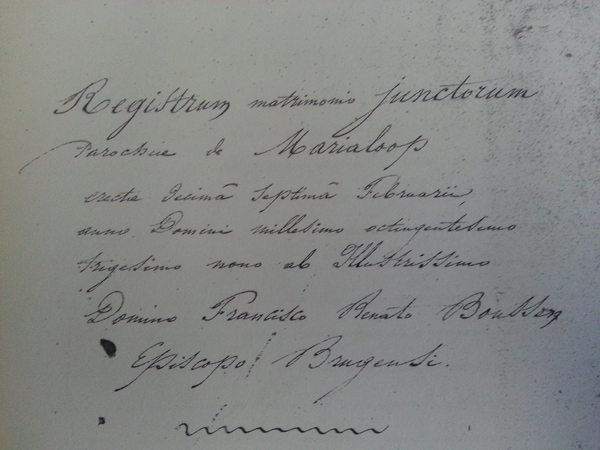 Registrum matrimonio junctorum
Parochiæ de Marialoop
erectæ decimâ septimâ Februarii,
anno Domini millesimo octingentesimo
trigesimo nono ab Illustrissimo
Domino Francisco Renato Boussen
Episcopo Brugensi.